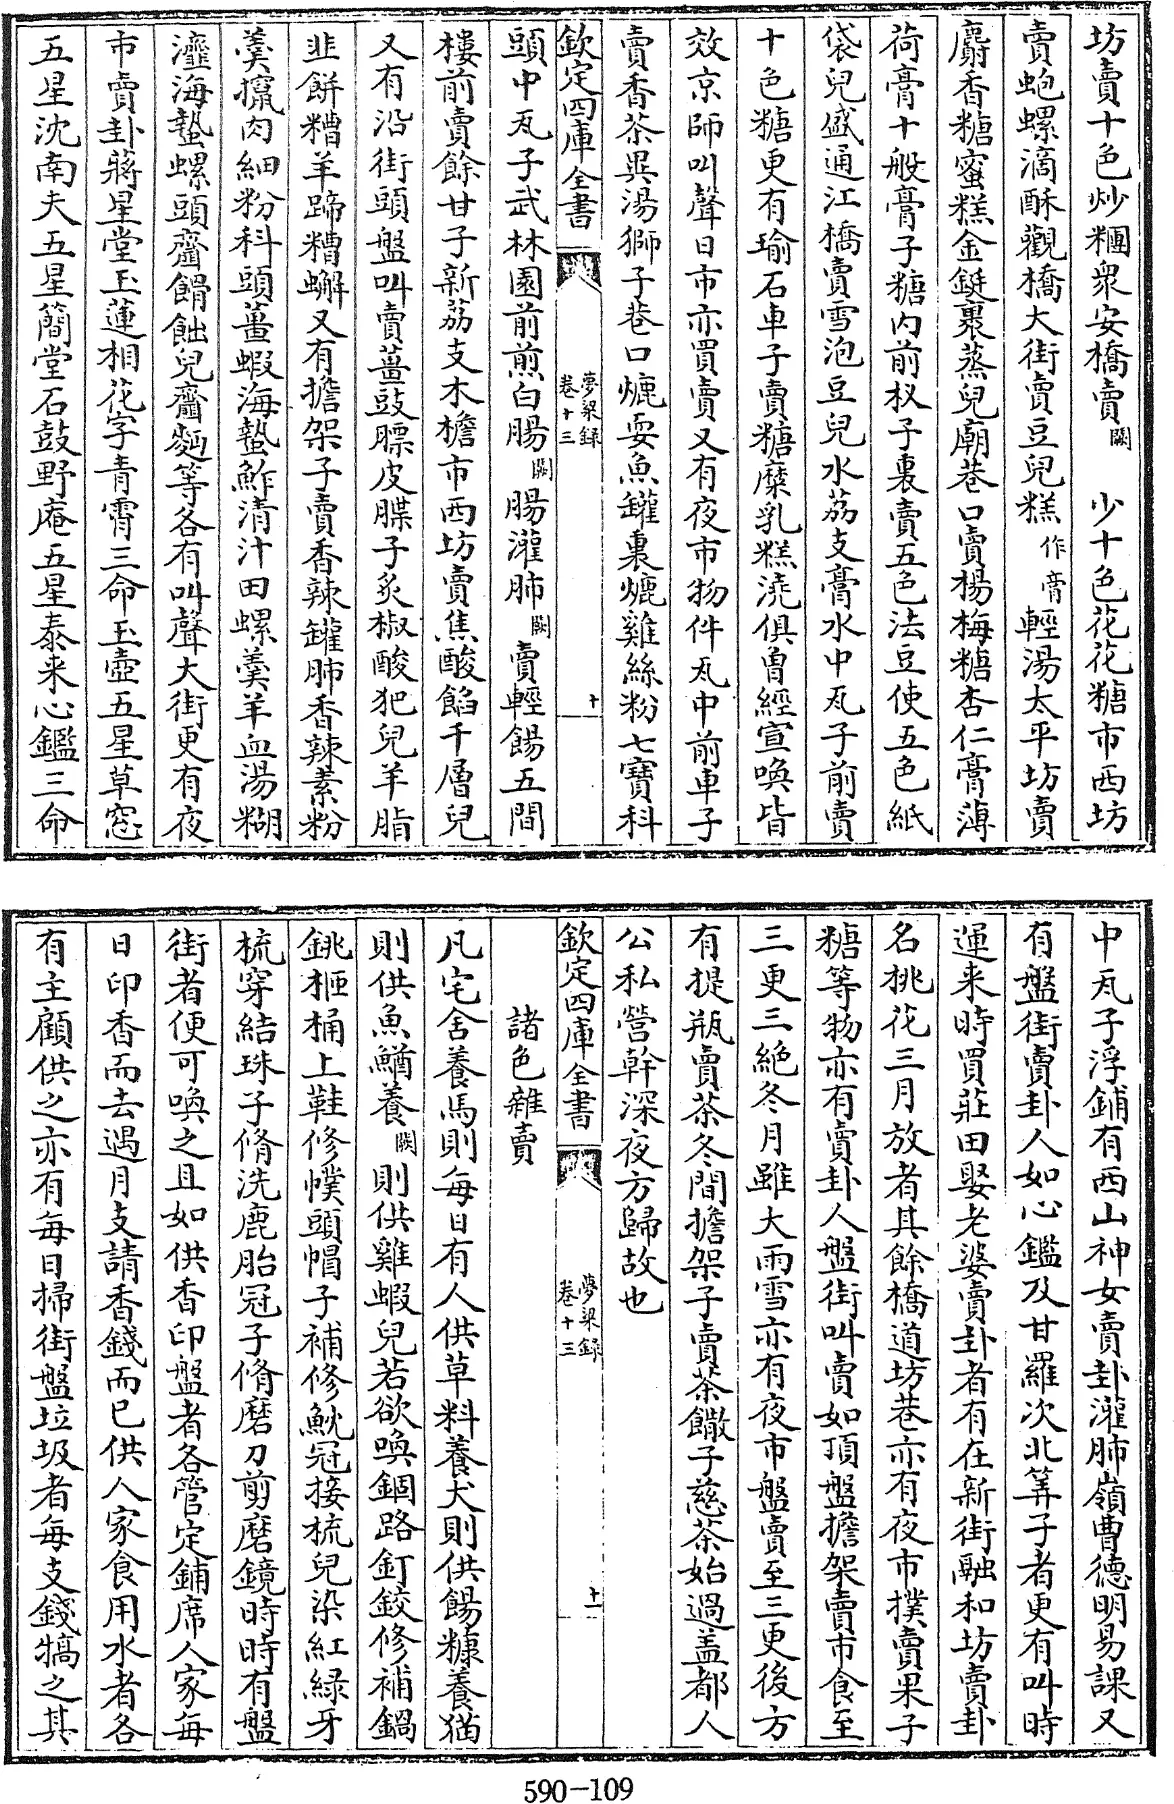 坊賣十色炒糰衆安橋賣闕 少十色花花糖市西坊
賣蚫螺滴酥觀橋大街賣豆兒糕作膏輕湯太平坊賣
麝香糖蜜糕金鋌裹蒸兒廟巷口賣楊梅糖杏仁膏薄
荷膏十般膏子糖内前杈子裏賣五色法豆使五色紙
袋兒盛通江橋賣雪泡豆兒水荔支膏水中瓦子前賣
十色糖更有瑜石車子賣糖糜乳糕澆俱曽經宣喚皆
效京師叫聲日市亦買賣又有夜市物件瓦中前車子
賣香茶異湯獅子巷口熝耍魚罐裏熝雞絲粉七寶科
欽定四庫全書 夢粱録 卷十三 十
頭中瓦子武林園前煎白腸闕腸灌肺闕賣輕餳五間
樓前賣餘甘子新荔支木檐市西坊賣焦酸餡千層兒
又有沿街頭盤叫賣薑豉膘皮䐑子炙椒酸犯兒羊脂
韭餅糟羊蹄糟蠏又有擔架子賣香辣罐肺香辣素粉
羹攛肉細粉科頭薑蝦海蟄鮓清汁田螺羹羊血湯糊
瀣海蟄螺頭齏餶飿兒齏麪等各有叫聲大街更有夜
市賣卦蔣星堂玉蓮相花字青霄三命玉壺五星草窓
五星沈南夫五星簡堂石鼓野庵五星泰来心鑑三命
中瓦子浮鋪有西山神女賣卦灌肺嶺曹德明易課又
有盤街賣卦人如心鑑及甘羅次北筭子者更有叫時
運来時買莊田娶老婆賣卦者有在新街融和坊賣卦
名桃花三月放者其餘橋道坊巷亦有夜市撲賣果子
糖等物亦有賣卦人盤街叫賣如頂盤擔架賣市食至
三更三絶冬月雖大雨雪亦有夜市盤賣至三更後方
有提瓶賣茶冬間擔架子賣茶饊子慈茶始過盖都人
公私營幹深夜方歸故也
欽定四庫全書 夢粱録 卷十三 十一
諸色雜賣
凡宅舍養馬則每日有人供草料養犬則供餳糠養猫
則供魚鰌養闕則供雞蝦兒若欲喚錮路釘鉸修補鍋
銚柂桶上鞋修幞頭帽子補修魫冠接梳兒染紅緑牙
梳穿結珠子脩洗鹿胎冠子脩磨刀剪磨鏡時時有盤
街者便可喚之且如供香印盤者各管定鋪席人家每
日印香而去遇月支請香錢而已供人家食用水者各
有主顧供之亦有每日掃街盤垃圾者每支錢犒之其
590-109